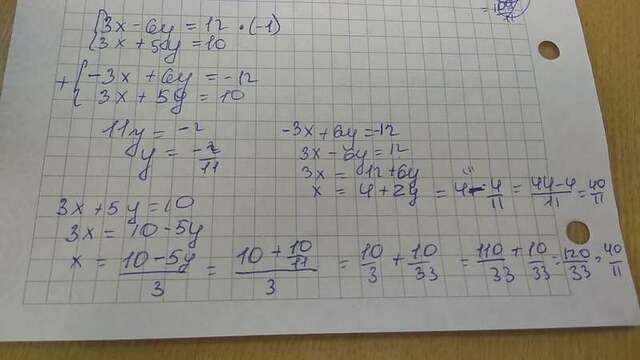 {3x - 6y = 12 · (-1)
{3x + 5y = 10
+ {-3x + 6y = -12
{3x + 5y = 10
11y = -2
y = -2/11
-3x + 6y = -12
3x - 6y = 12
3x = 12 + 6y
x = 4 + 2y = 4 - 4/11 = (44-4)/11 = 40/11
3x + 5y = 10
3x = 10 - 5y
x = (10 - 5y)/3 = (10 + 10/11)/3 = 10/3 + 10/33 = 110/33 + 10/33 = 120/33 = 40/11